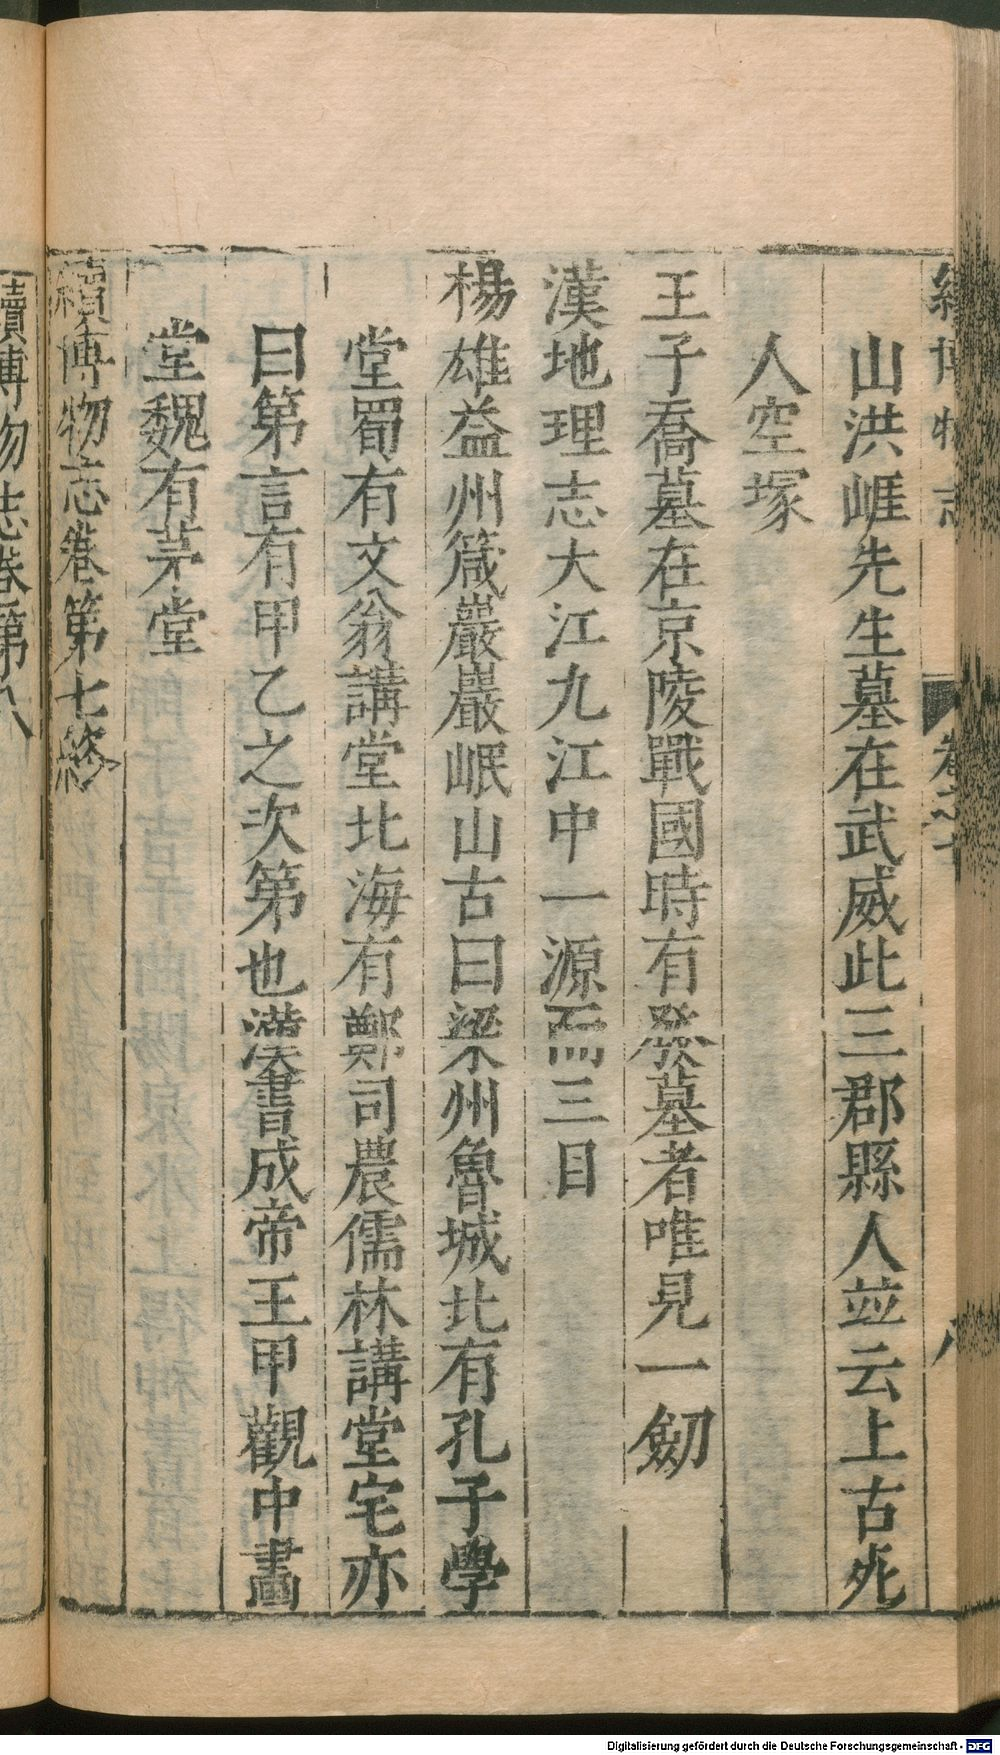 山洪崕先生墓在武威此三郡縣人並云上古死
人空塚
王子喬墓在京陵戰國時有發墓者唯見一劒
漢地理志大江九江中一源而三目
楊雄益州箴巖巖岷山古曰梁州魯城北有孔子學
堂蜀有文翁講堂北海有鄭司農儒林講堂宅亦
曰第言有甲乙之次第也漢書成帝王甲觀中畫
堂魏有茅堂
續博物志卷第七終
續博物志卷第八
Digitalisierung gefördert durch die Deutsche Forschungsgemeinschaft - DFG